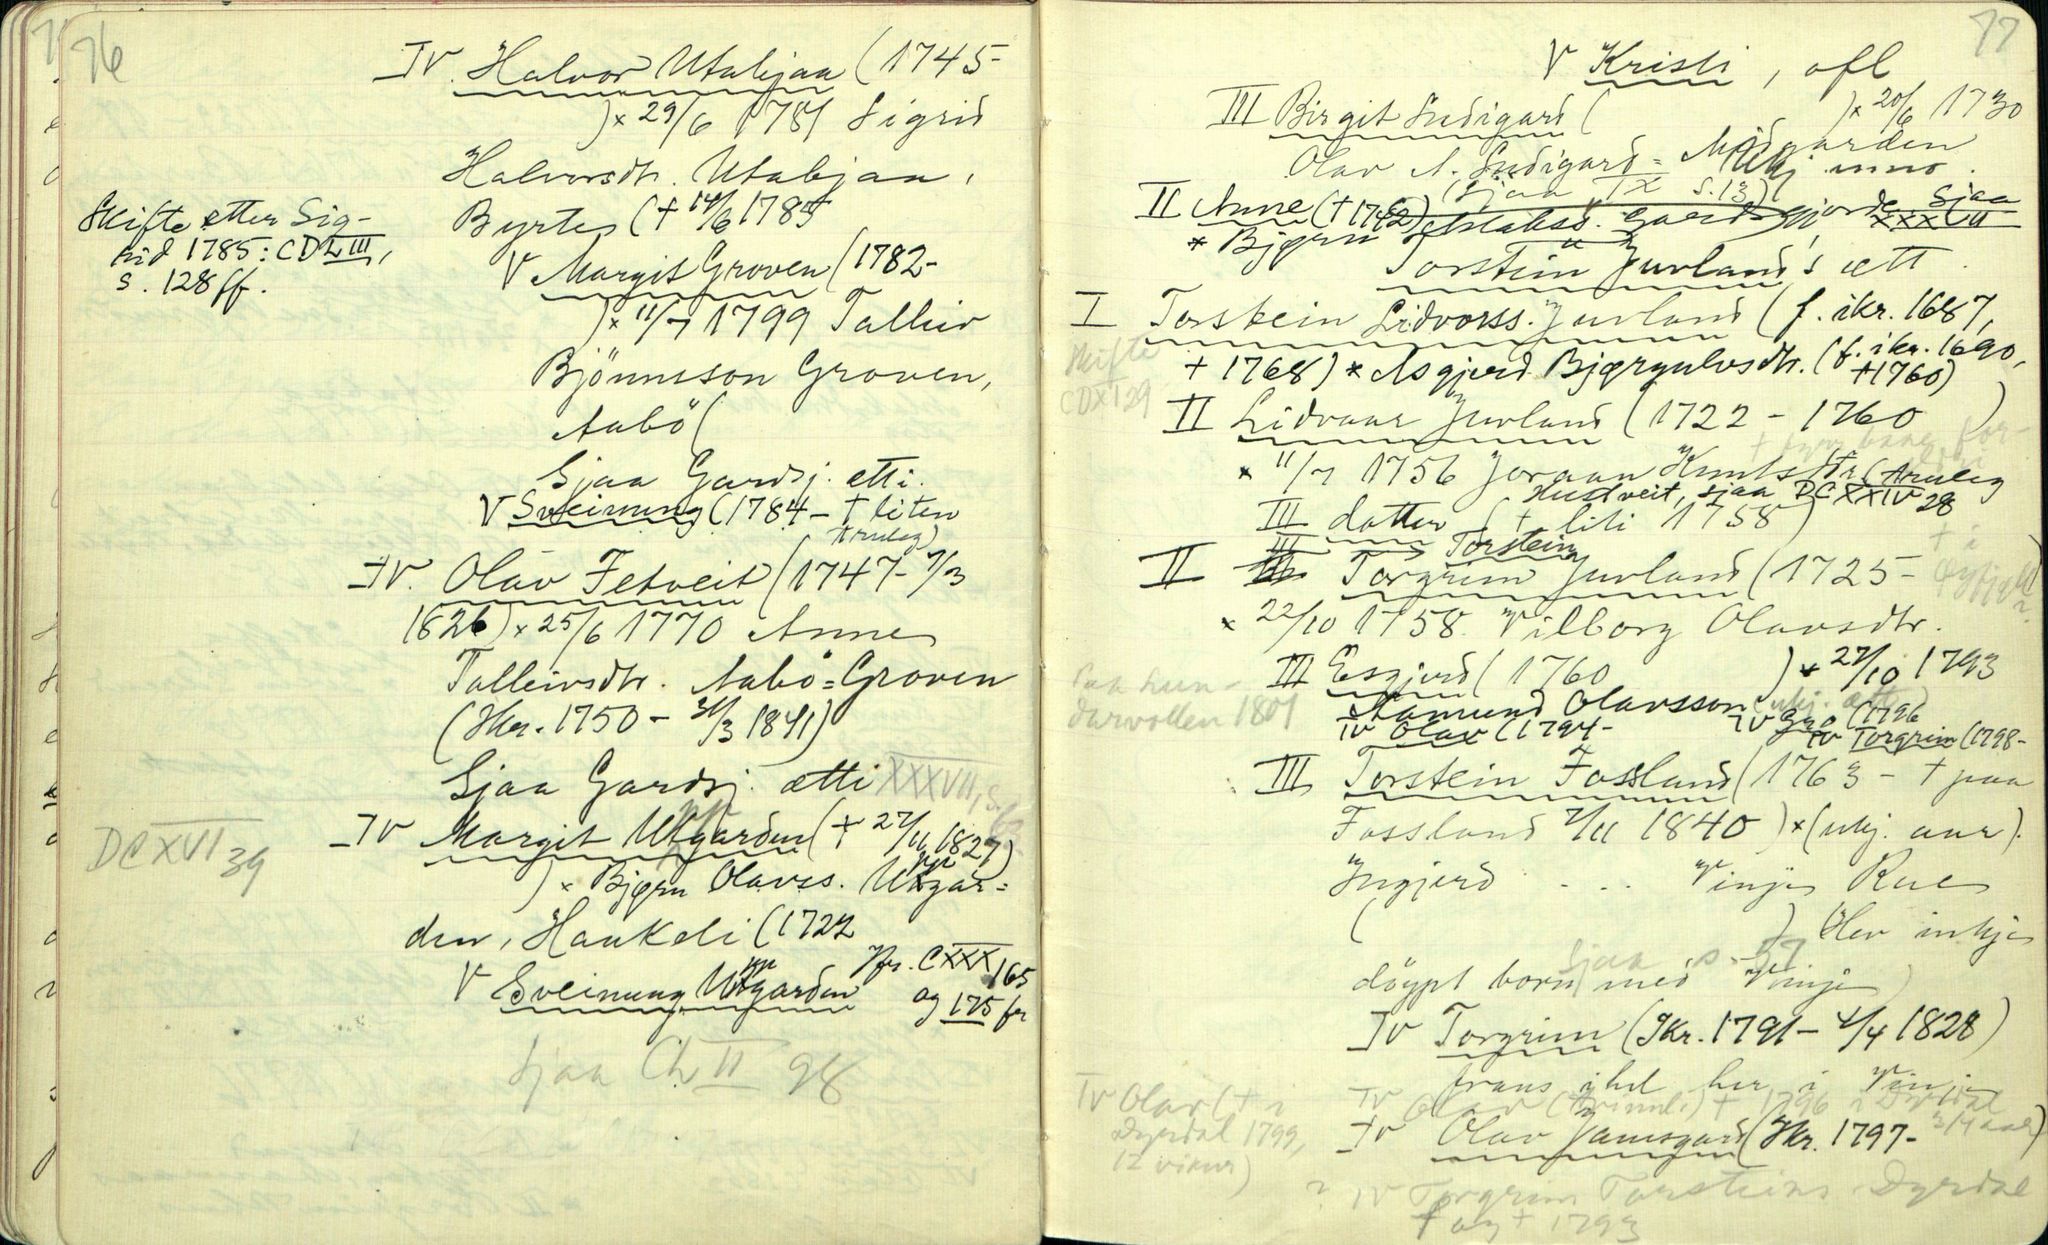 76
IV. Halvor Utabjaa (1745-
)× 29/6 1781 Sigrid
Halvorsdtr. Utabjaa,
Byrtes († 14/6 1785
Skifte etter Sig-
rid 1785: CDLIII,
s. 128 ff.
V Margit Groven (1782-
)× 11/7 1799 Talleiv
Bjönnsson Groven,
Aabö (
Sjaa Gardsj. ætti.
V Sveinung (1784 - † liten
IV. Olav Fetveit (1747- 7/3
1826) × 25/6 1770 Anne
Talleivsdtr. Aabö=Groven
(Ikr. 1750 - 31/3 1841)
Sjaa Gardsj. ætti XXXVII, s.
DCXVI 39
IV Margit Utgarden († 27/11 1827)
) × Bjørn Olavss. Utgar=
den, Haukeli (1722
V Sveinung Utgarden
Jfr. CXXX 165
og 175 fr
Sjaa CLII 98
77
V Kristi, ofl
III Birgit Sudigard ( )× 20/6 1730
Olav A. Sudigard = Midgarden
(Sjaa IX s. 13)
II Anne (†1742) Gardsjorde Sjaa XXXVII
* Bjørn
Torstein Jurland's ætt.
I Torstein Lidvorss. Jurland (f. ikr. 1687,
† 1768) × Asgjerd Bjørgulvsdtr. (f. ikr. 1690,
†1760)
Skifte
CDXI 29
II Lidvaar Jurland (1722 - 1760 )
× 11/7 1756 Joraan Knutsdtr (Aruleg
Hustveit, sjaa DCXXIV 28
III datter († liti 1758)
III Torstein
II Torgrim Jurland (1725 -
† i Øyfjell?
× 22/10 1758 Vilborg Olavsdtr.
III Esgjerd (1760 )× 27/10 1793
Aamund Olavsson (ukj. ætt)
IV Olav (1794- IV Gro (1796
IV Torgrim (1798-
III Torstein Fossland (1763 - † paa
Fossland 7/11 1840) × (ukj. aar).
Ingjerd . . . Vinje Rue
( ) Hev inkje
Sjaa s. 57
döypt born med Vinje
IV Torgrim (Ikr. 1791 - 4/4 1828)
fraus ihel her i Vinje
IV Olav († i
Dyrdal 1799,
12 vikur)
IV Olav † 1796 i Dyrdal
IV Olav Jamsgard (Ikr. 1797- 3/4 aar)
? IV Torgrim Torsteins. Dyrdal
f og † 1793